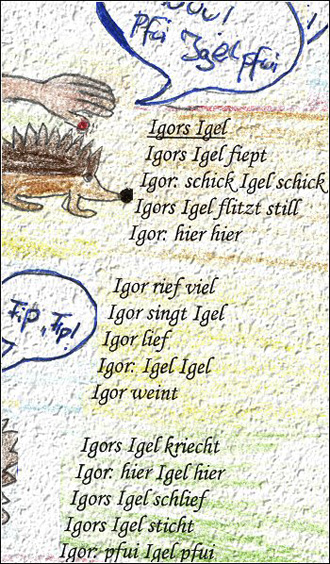 pfui Igel pfui
Igors Igel
Igors Igel fiept
Igor: schick Igel schick
Igors Igel flitzt still
Igor: hier hier
Fip, Fip!
Igor rief viel
Igor singt Igel
Igor lief
Igor: Igel Igel
Igor weint
Igors Igel kriecht
Igor: hier Igel hier
Igors Igel schlief
Igors Igel sticht
Igor: pfui Igel pfui